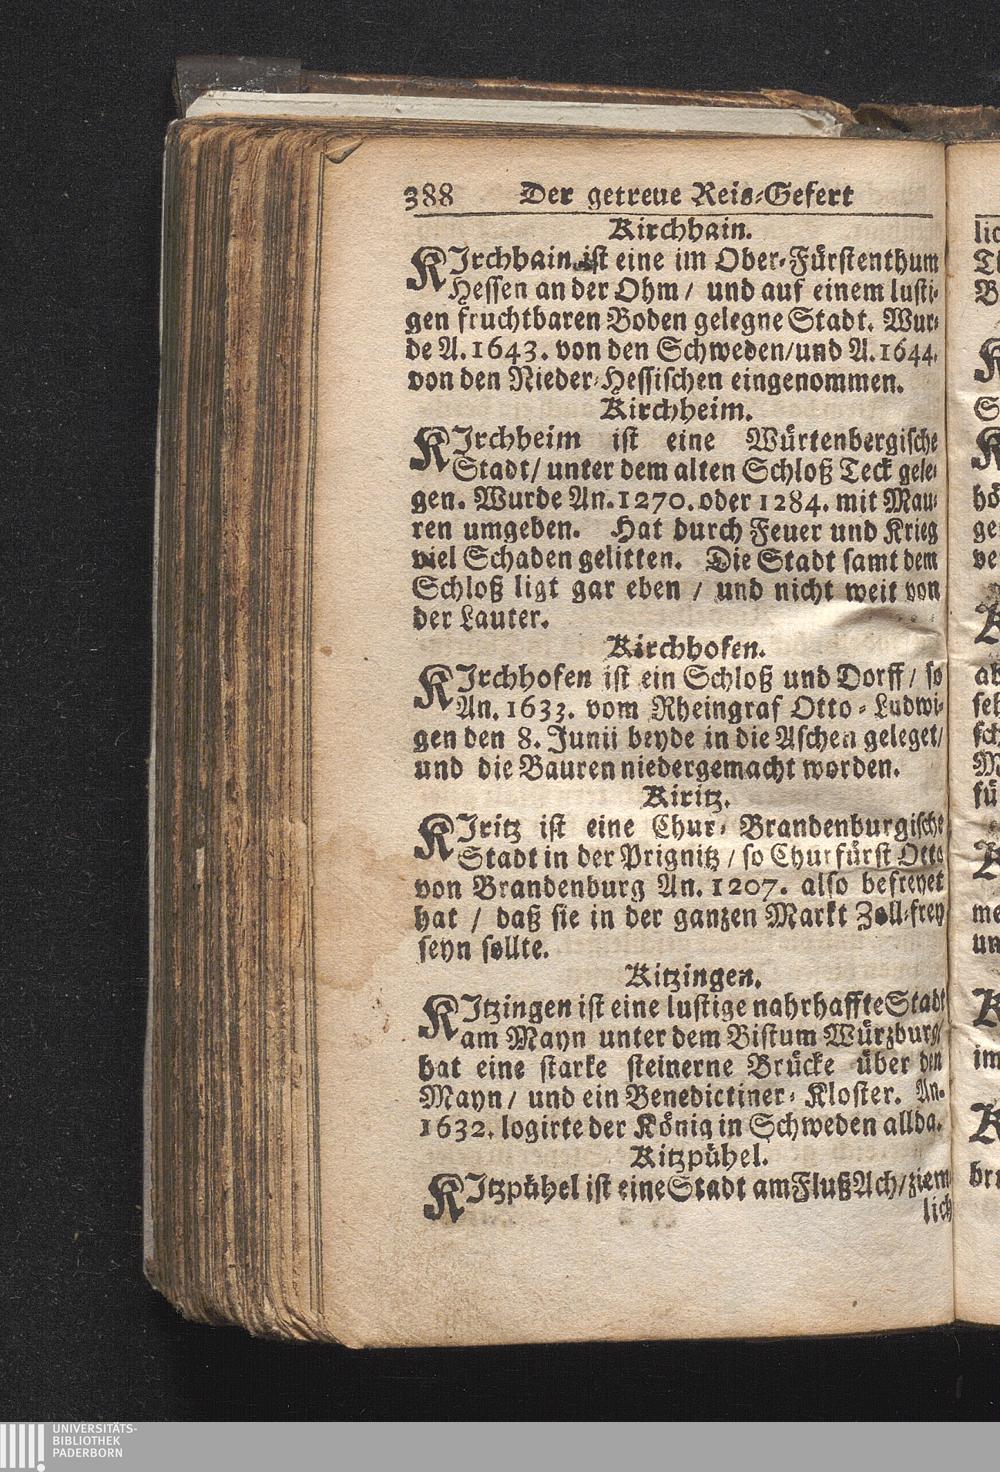 388 Der getreue Reis-Gefert
Kirchhain.
KIrchhain ist eine im Ober-Fürstenthum
Hessen an der Ohm / und auf einem lusti-
gen fruchtbaren Boden gelegne Stadt. Wur-
de A. 1643. von den Schweden/und A. 1644.
von den Nieder-Hessischen eingenommen.
Kirchheim.
KIrchheim ist eine Würtenbergische
Stadt/ unter dem alten Schloß Teck gele-
gen. Wurde An. 1270. oder 1284. mit Mau-
ren umgeben. Hat durch Feuer und Krieg
viel Schaden gelitten. Die Stadt samt dem
Schloß ligt gar eben / und nicht weit von
der Lauter.
Kirchhofen.
KIrchhofen ist ein Schloß und Dorff / so
An. 1633. vom Rheingraf Otto-Ludwi-
gen den 8. Junii beyde in die Aschen geleget/
und die Bauren niedergemacht worden.
Kiritz.
KIritz ist eine Chur-Brandenburgische
Stadt in der Prignitz / so Churfürst Otto
von Brandenburg An. 1207. also befreyet
hat / daß sie in der ganzen Markt Zoll-frey
seyn sollte.
Kitzingen.
KItzingen ist eine lustige nahrhaffte Stadt
am Mayn unter dem Bistum Würzburg/
hat eine starke steinerne Brücke über den
Mayn / und ein Benedictiner-Kloster. An.
1632. logirte der König in Schweden allda.
Kitzpühel.
KItzpühel ist eine Stadt am Fluß Ach/ziem
lich
UNIVERSITÄTS-
BIBLIOTHEK
PADERBORN